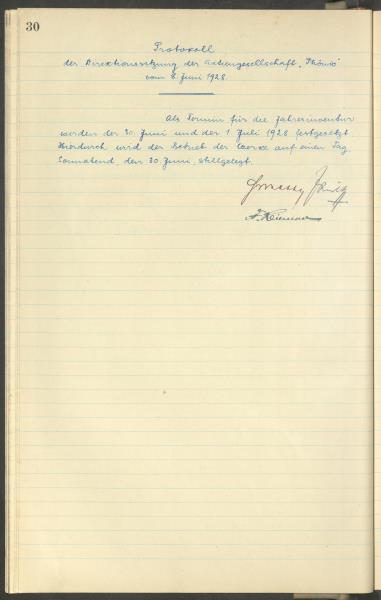 30
Protokoll
der Direktionssitzung der Aktiengesellschaft „Phönix“
vom 8. Juni 1928.
Als Termin für die Jahresinventur
werden der 30. Juni und der 1. Juli 1928 festgesetzt.
Hierdurch wird der Betrieb der Werke auf einen Tag,
Sonnabend, den 30 Juni, stillgelegt.